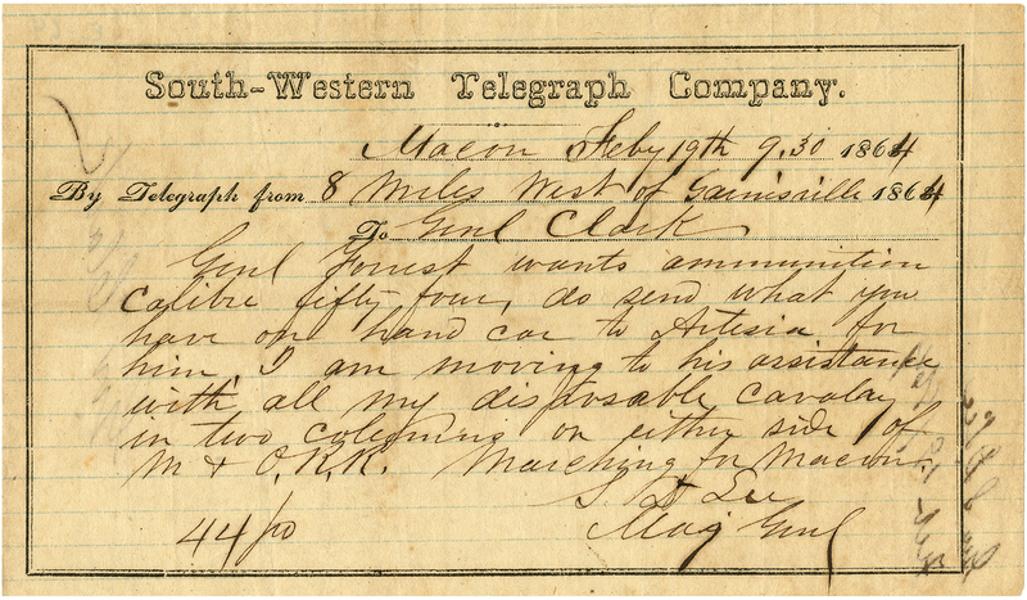 South-Western Telegraph Company.
Macon Feby 19th 9.30 1864
By Telegraph from 8 Miles West of Gainisville 1864
To Genl Clark
Genl Forrest wants ammunition
Calibre fifty four, do send what you
have on hand car to Artesia for
him, I am moving to his assistance
with all my disposable Cavalry
in two colums on either side of
M & O.R.R. Marching for Macon
S. D Lee
Maj Genl